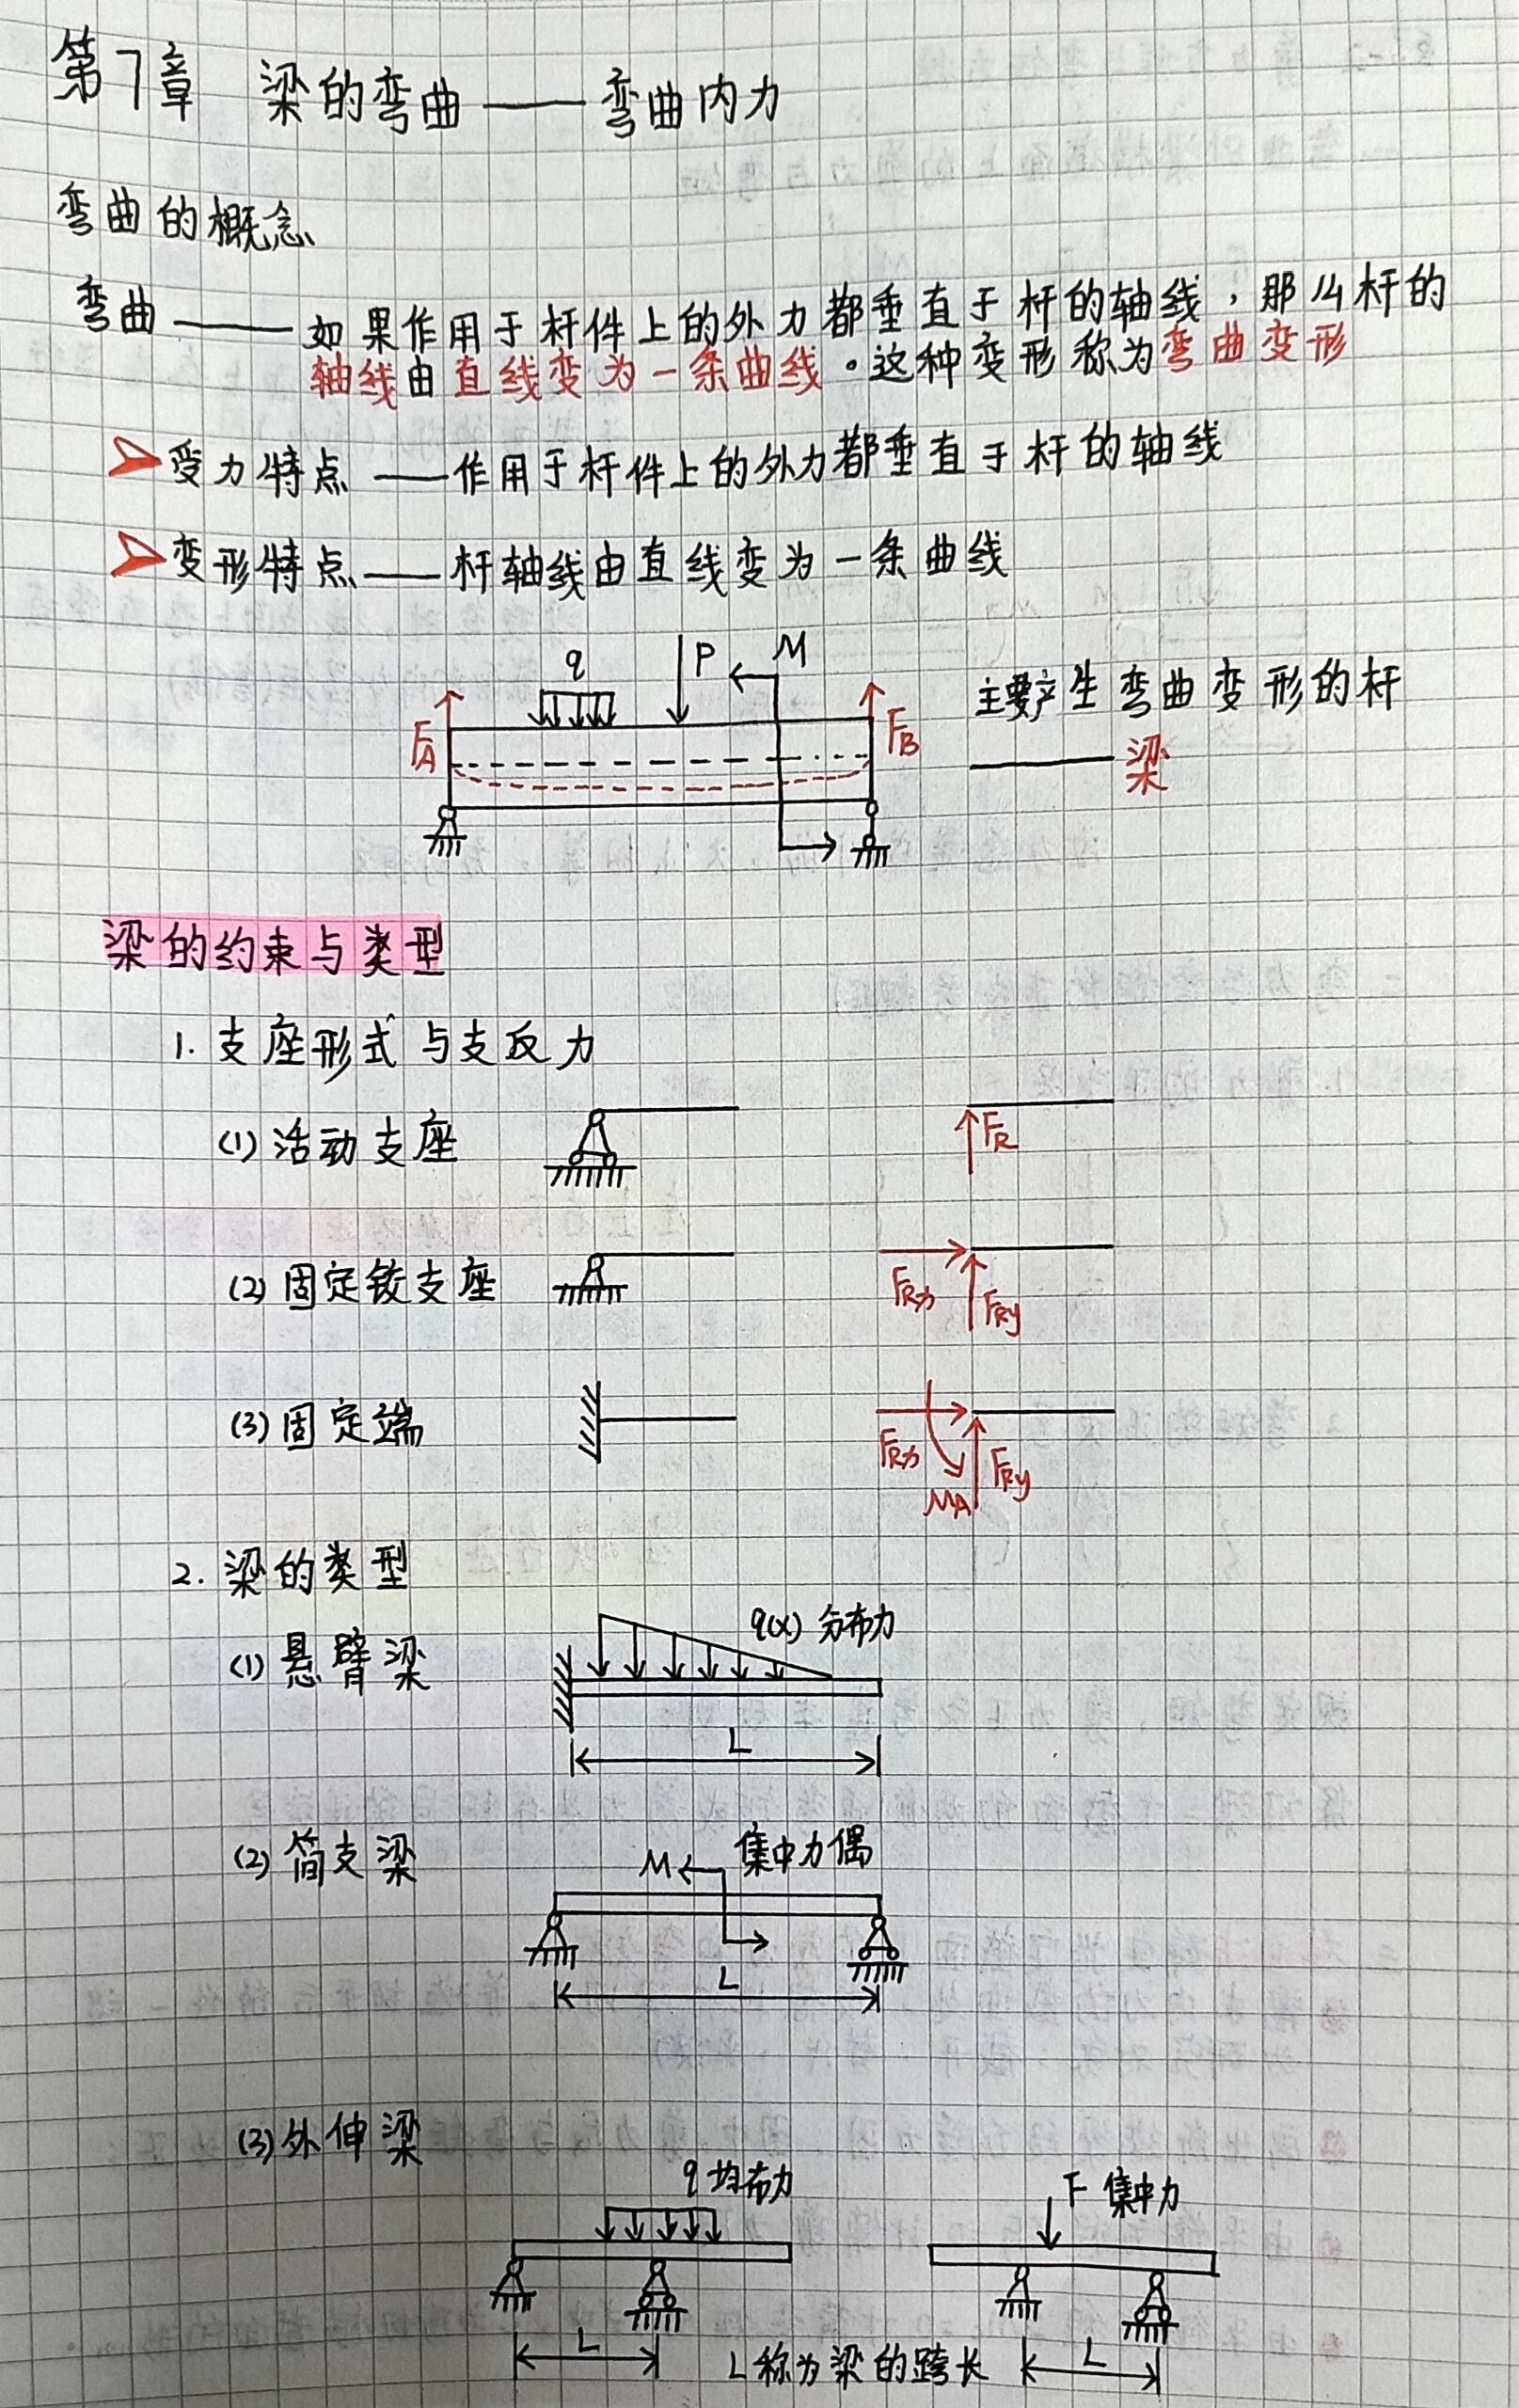 第7章 梁的弯曲——弯曲内力
弯曲的概念
弯曲——如果作用于杆件上的外力都垂直于杆的轴线，那么杆的
轴线由直线变为一条曲线。这种变形称为弯曲变形
受力特点——作用于杆件上的外力都垂直于杆的轴线
变形特点——杆轴线由直线变为一条曲线
q P M
FA FB
主要产生弯曲变形的杆
——梁
梁的约束与类型
1. 支座形式与支反力
(1) 活动支座 FR
(2) 固定铰支座 FRx FRy
(3) 固定端 FRx MA FRy
2. 梁的类型
(1) 悬臂梁 q(x) 分布力
L
(2) 简支梁 M 集中力偶
L
(3) 外伸梁
q 均布力 F 集中力
L L称为梁的跨长 L